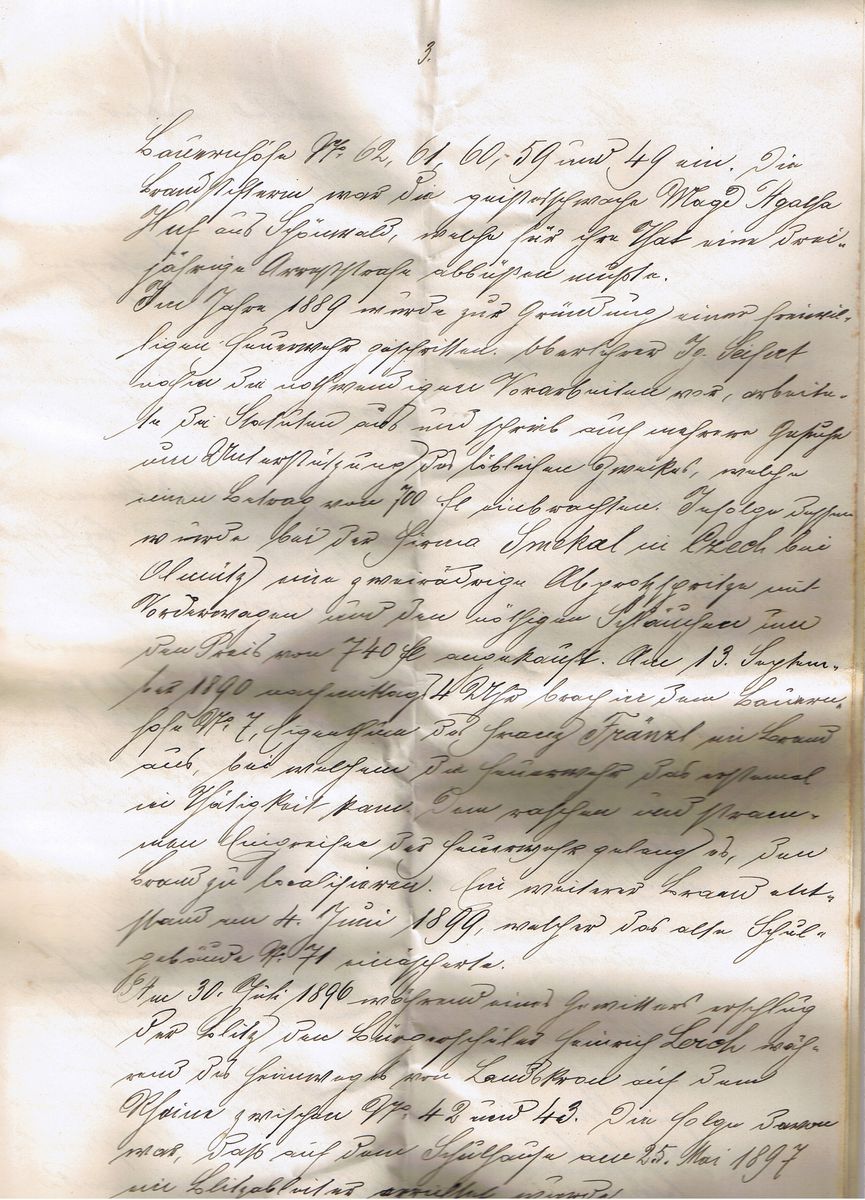 3.
Bauernhöfe No. 62, 61, 60, 59 und 49 ein. Die
Brandstifterin war die geistesschwache Magd Agatha
Huf aus Schönwald, welche für ihre That eine drei-
jährige Arreststrafe abbüßen mußte.
Im Jahre 1889 wurde zur Gründung einer freiwil-
ligen Feuerwehr geschritten. Oberlehrer Ig. Seifert
nahm die nothwendigen Vorarbeiten vor, arbeite-
te die Statuten aus und schrieb auch mehrere Gesuche
um Unterstützung des löblichen Zweckes, welche
einen Betrag von 700 fl einbrachten. Infolge dessen
wurde bei der Firma Smekal in Czech bei
Olmütz eine zweirädrige Abprotzspritze mit
Vorderwagen und den nöthigen Schläuchen um
den Preis von 740 fl angekauft. Am 13. Septem-
ber 1890 nachmittags 4 Uhr brach in dem Bauern-
hofe No. 7, Eigenthum des Franz Fränzl ein Brand
aus, bei welchem die Feuerwehr das erstemal
in Thätigkeit kam. Dem raschen und stram-
men Eingreifen der Feuerwehr gelang es, den
Brand zu localisieren. Ein weiterer Brand ent-
stand am 4. Juni 1899, welcher das alte Schul-
gebäude No. 71 einäscherte.
Am 30. Juli 1896 während eines Gewitters erschlug
der Blitz den Bürgerschüler Heinrich Lerch wäh-
rend des Heimweges von Landskron auf dem
Raine zwischen No. 42 und 43. Die Folge davon
war, daß auf dem Schulhause am 25. Mai 1897
ein Blitzableiter errichtet wurde.